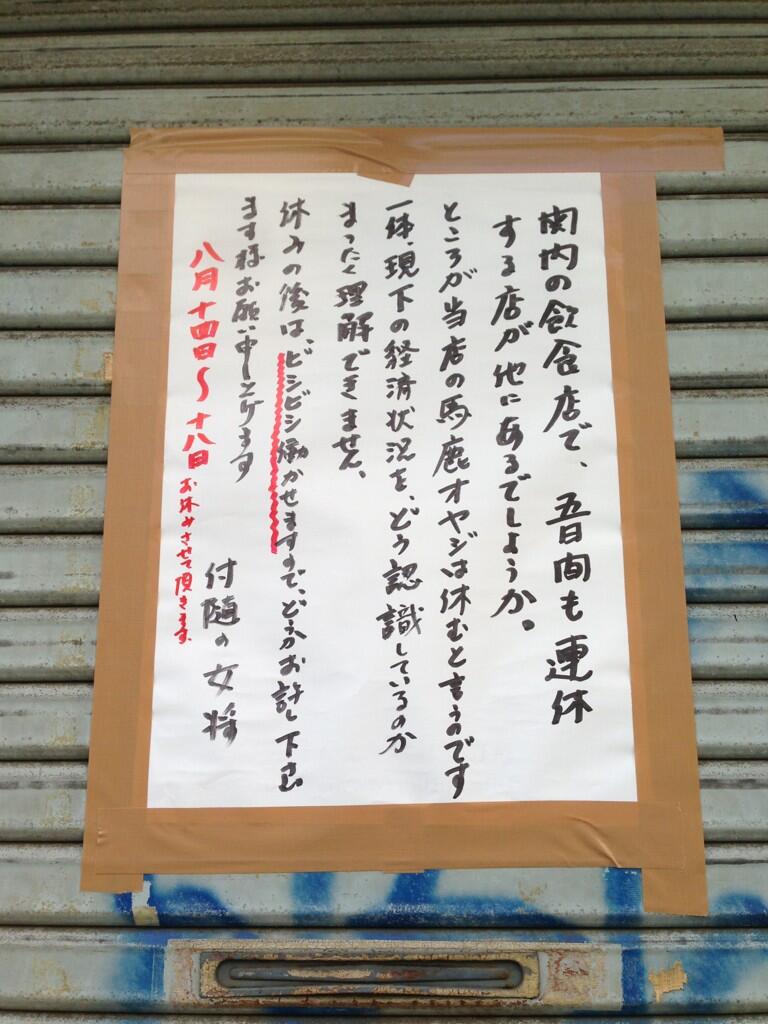 関内の飲食店で、五日間も連休
する店が他にあるでしょうか。
ところが当店の馬鹿オヤジは休むと言うのです
一体、現下の経済状況を、どう認識しているのか
まったく理解できません、
休みの後は、ビシビシ働かせますので、どうかお許し下さいませ
ます様お願い申し上げます
付随の女将
八月十四日〜十八日お休みさせて頂きます